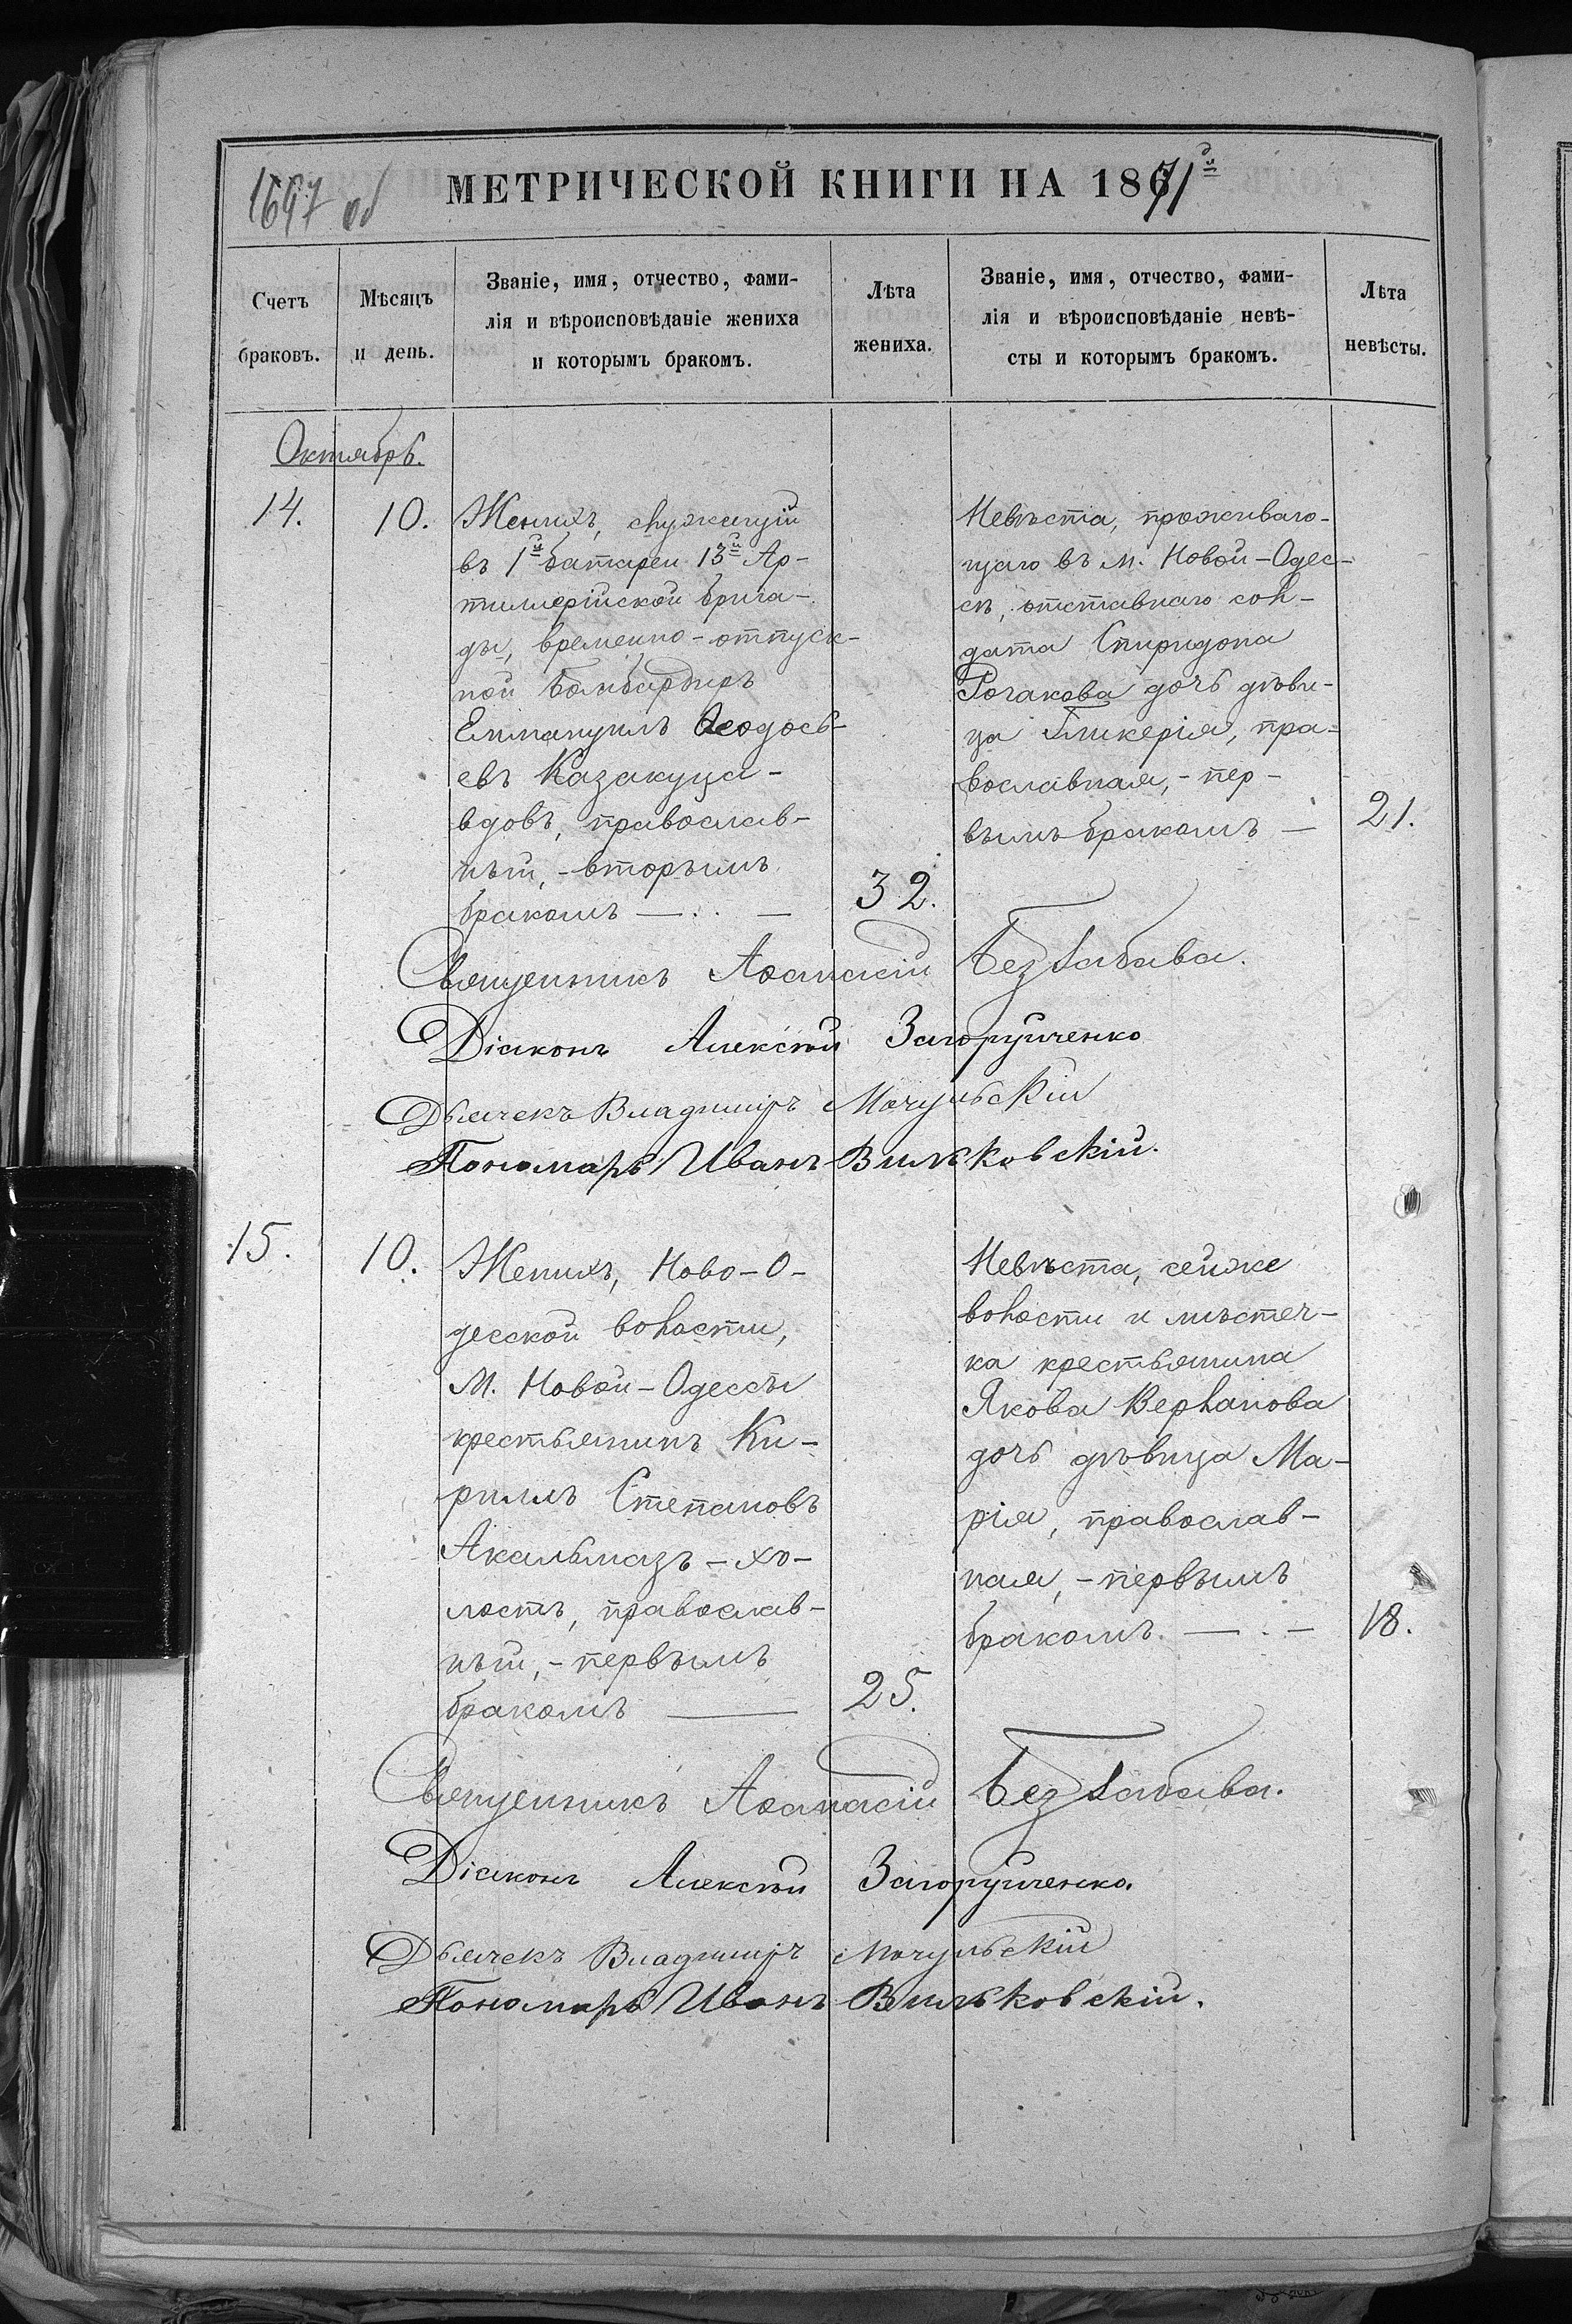 1697 об
МЕТРИЧЕСКОЙ КНИГИ НА 1871й
Счетъ
браковъ.
Мѣсяцъ
и день.
Званіе, имя, отчество, фами-
лія и вѣроисповѣданіе жениха
и которымъ бракомъ.
Лѣта
жениха.
Званіе, имя, отчество, фами-
лія и вѣроисповѣданіе невѣ-
сты и которымъ бракомъ.
Лѣта
невѣсты.
Октябрь.
14.
10.
Женихъ, служащій
въ 1й батареи 13й Ар-
тиллерійской брига-
ды, временно-отпуск-
ной бомбардиръ
Еммануилъ Ѳеодось-
евъ Казакуца -
вдовъ, православ-
ный, - вторымъ
бракомъ —
32.
Невѣста, проживаю-
щаго въ м. Новой-Одес-
сѣ, отставнаго сол-
дата Спиридона
Рогакова дочь дѣви-
ца Гликерія, пра-
вославная, - пер-
вымъ бракомъ —
21.
Священникъ Аѳанасій Беззабава.
Діаконъ Алексѣй Загоруйченко
Дьячекъ Владиміръ Мочульскій
Пономарь Иванъ Вильковскій.
15.
10.
Женихъ, Ново-О-
десской волости,
М. Новой-Одессы
крестьянинъ Ки-
риллъ Степановъ
Акальмазъ - хо-
лостъ, православ-
ный, - первымъ
бракомъ —
25.
Невѣста, сейже
волости и мѣстеч-
ка крестьянина
Якова Верланова
дочь дѣвица Ма-
рія, православ-
ная, - первымъ
бракомъ. —
18.
Священникъ Аѳанасій Беззабава.
Діаконъ Алексѣй Загоруйченко.
Дьячекъ Владиміръ Мочульскій
Пономарь Иванъ Вильковскій.